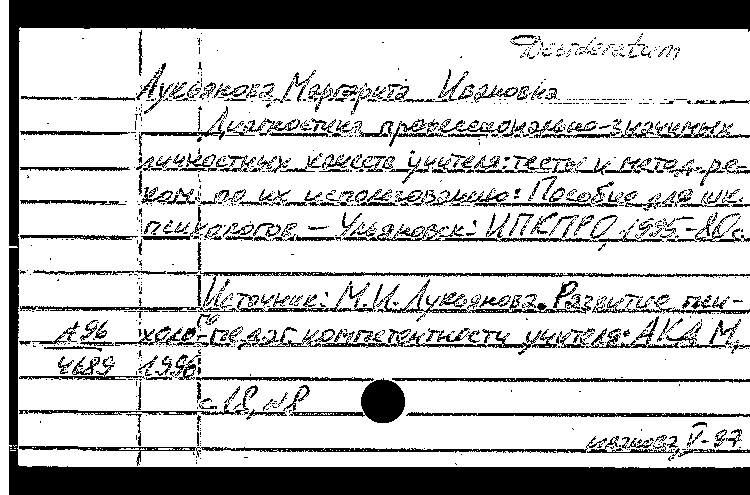 Desideratum
Лукьянова, Маргарита Ивановна
Диагностика профессионально-значимых
личностных качеств учителя: тесты и метод. ре-
ком. по их использованию: Пособие для шк.
психологов. – Ульяновск: ИПКПРО, 1995.-80с.
Источник: М.И. Лукьянова. Развитие пси-
А96 холо-педаг. компетентности учителя: АКД М,
4689 1996
с 18, N8
V-97